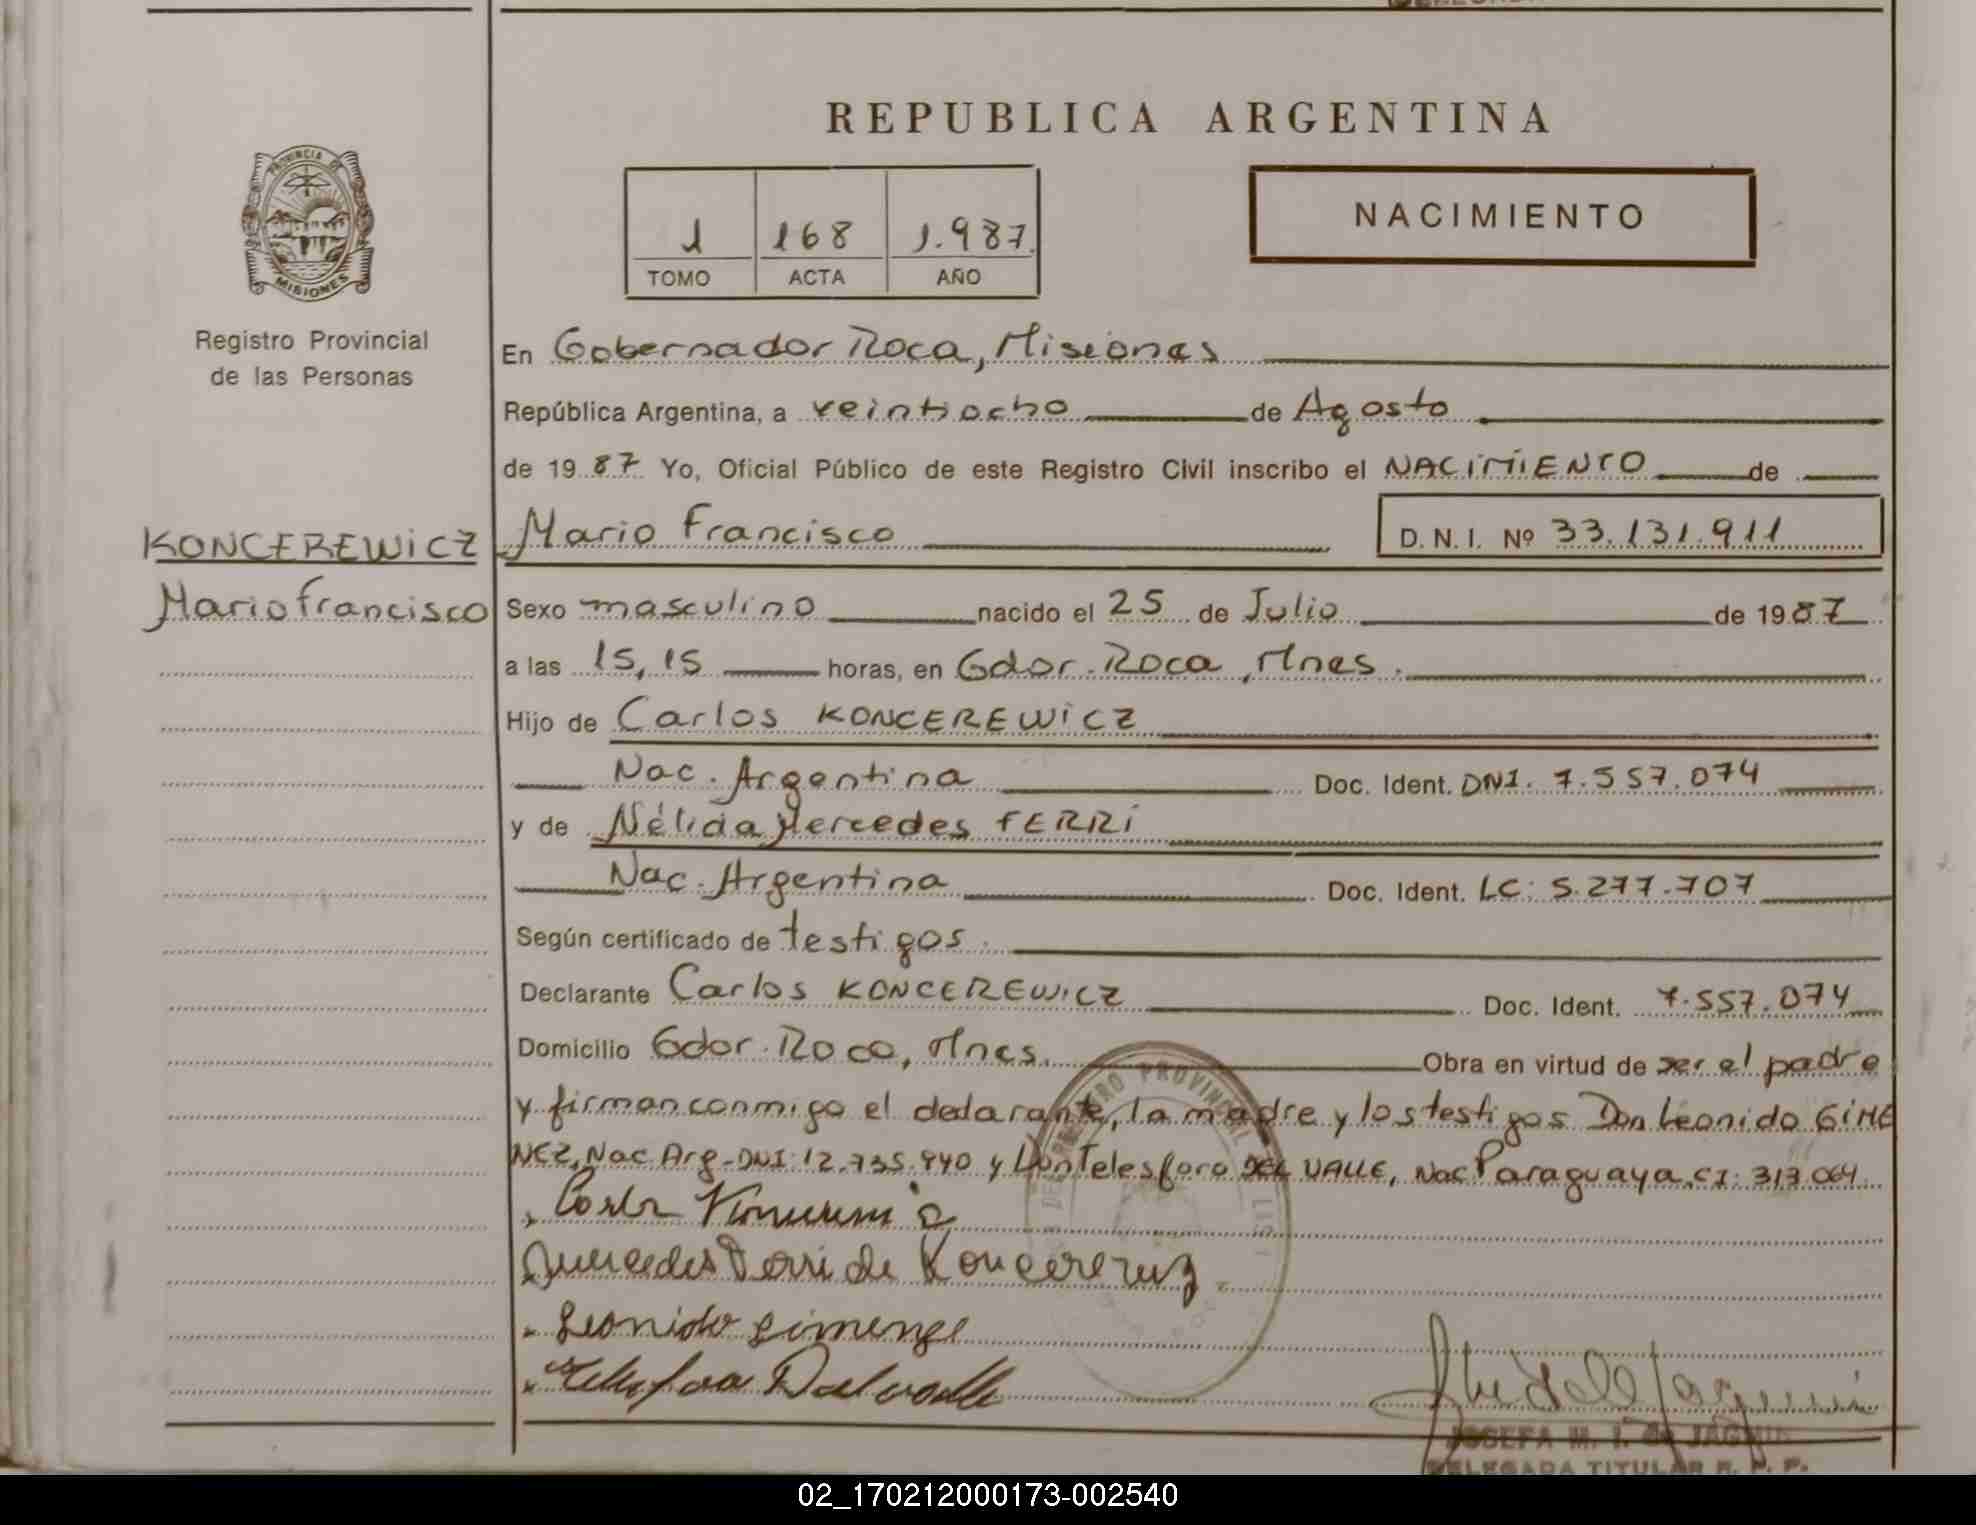 REPUBLICA ARGENTINA
PROVINCIA DE
MISIONES
1 168 1.987
TOMO ACTA AÑO
NACIMIENTO
Registro Provincial
de las Personas
En Gobernador Roca, Misiones
República Argentina, a veintiocho de Agosto
de 19 87 Yo, Oficial Público de este Registro Civil inscribo el NACIMIENTO de
KONCEREWICZ Mario Francisco D. N. I. Nº 33.131.911
Mario francisco Sexo masculino nacido el 25 de Julio de 19 87
a las 15,15 horas, en Gdor. Roca, Mnes.
Hijo de Carlos KONCEREWICZ
Nac. Argentina Doc. Ident. DNI. 7.557.074
y de Nélida Mercedes FERRI
Nac. Argentina Doc. Ident. LC: 5.277.707
Según certificado de testigos.
Declarante Carlos KONCEREWICZ Doc. Ident. 7.557.074
Domicilio Gdor. Roca, Mnes. Obra en virtud de ser el padre
y firman conmigo el declarante, la madre y los testigos Don Leonido GIME
NEZ, Nac. Arg-DNI: 12.735.940 y Don Telesforo DEL VALLE, Nac Paraguaya, CI: 313.064.
Mercedes Ferri de Koncerewiz
Leonido Gimenez
JOSEFA M. I. de
DELEGADA TITULAR R. P. P.
02_170212000173-002540